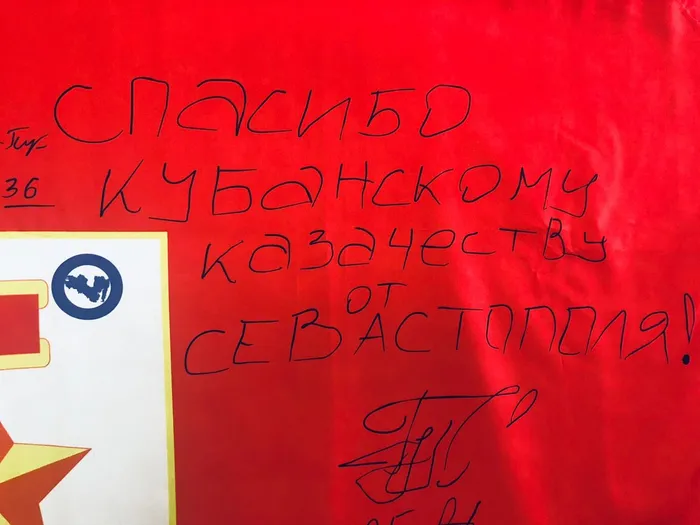 СПАСИБО
КУБАНСКОМУ
36
казачеству
от
СЕВАСТОПОЛЯ!